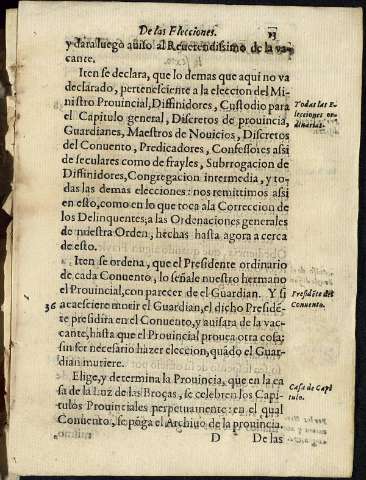 De las Elecciones. 13
y dara luego auiso al Reuerendissimo de la va-
cante.
Iten se declara, que lo demas que aqui no va
declarado, perteneſciente a la eleccion del Mi-
niſtro Prouincial, Diffinidores, Cuſtodio para
el Capitulo general, Diſcretos de prouincia,
Guardianes, Maeſtros de Nouicios, Diſcretos
del Conuento, Predicadores, Confeſſores aſsi
de ſeculares como de frayles, Subrrogacion de
Diffinidores, Congregacion intermedia, y to-
das las demas elecciones: nos remitimos aſsi
en eſto, como en lo que toca a la Correccion de
los Delinquentes; a las Ordenaciones generales
de nueſtra Orden, hechas haſta agora a cerca
de eſto.
Todas las E-
lecciones or-
dinarias.
Iten ſe ordena, que el Preſidente ordinario
de cada Conuento, lo ſeñale nueſtro hermano
el Prouincial, con parecer de el Guardian. Y ſi
36 acaeſciere morir el Guardian, el dicho Preſidē-
te preſidira en el Conuento, y auiſara de la vac-
cante, haſta que el Prouincial prouea otra coſa;
ſin ſer neceſario hazer eleccion, quādo el Guar-
dian muriere.
Preſidēte del
Conuento.
Elige, y determina la Prouincia, que en la ca
ſa de la Luz de las Broças, ſe celebren los Capi-
tulos Prouinciales perpetuamente: en el qual
Conuēto, ſe pōga el Archiuo de la prouincia.
Caſa de Capi
tulo.
D De las